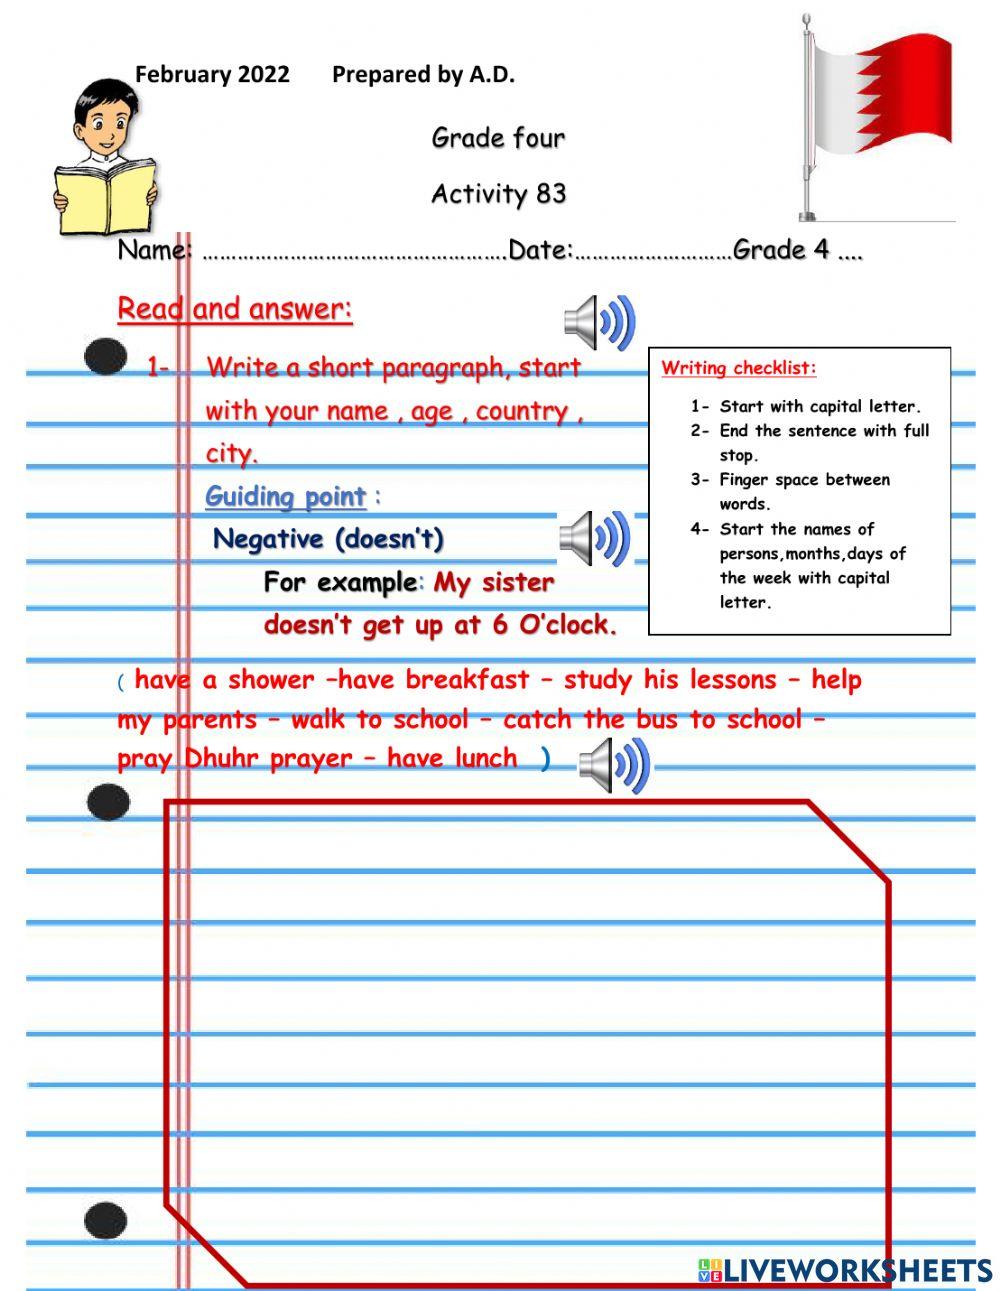 February 2022 Prepared by A.D.
Grade four
Activity 83
Name: ……………………………………….Date:……………………Grade 4 ....
Read and answer:
1- Write a short paragraph, start
with your name , age , country ,
city.
Guiding point :
Negative (doesn't)
For example: My sister
doesn't get up at 6 O'clock.
Writing checklist:
1- Start with capital letter.
2- End the sentence with full
stop.
3- Finger space between
words.
4- Start the names of
persons,months,days of
the week with capital
letter.
( have a shower –have breakfast – study his lessons – help
my parents – walk to school – catch the bus to school –
pray Dhuhr prayer – have lunch )
LIVE LIVEWORKSHEETS